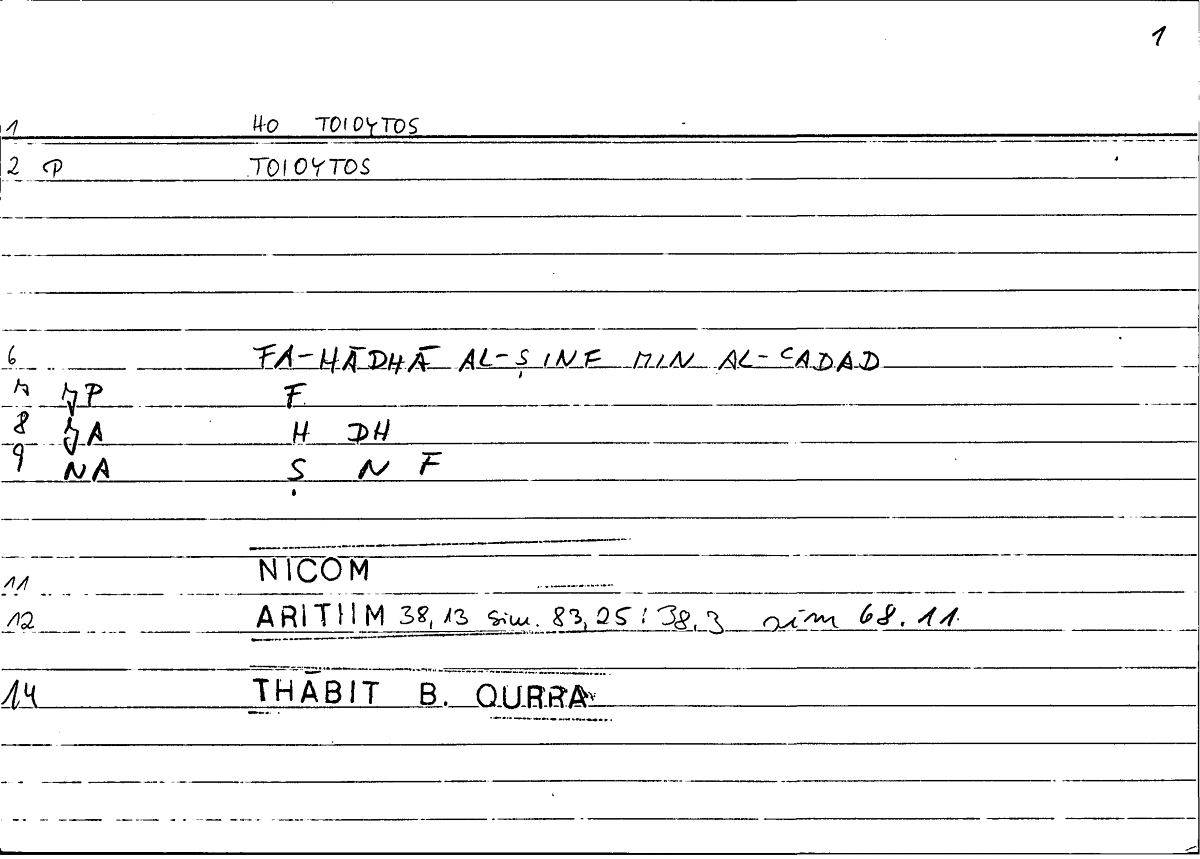 1
1 HO TOIOYTOS
2 P TOIOYTOS
6 FA-HĀDHĀ AL-ṢINF MIN AL-ʿADAD
7 P F
8 A H DH
9 NA Ṣ N F
11 NICOM
12 ARITHM 38,13 sim. 83,25 : 38.3 sim 68.11
14 THĀBIT B. QURRA